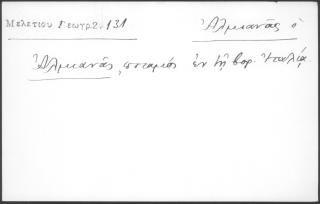 Μελετιου Γεωγρ.2. 131
Ἀλμιανᾶς ὁ
Ἀλμιανᾶς, ποταμὸς ἐν τῇ βορ. Ἰταλίᾳ.